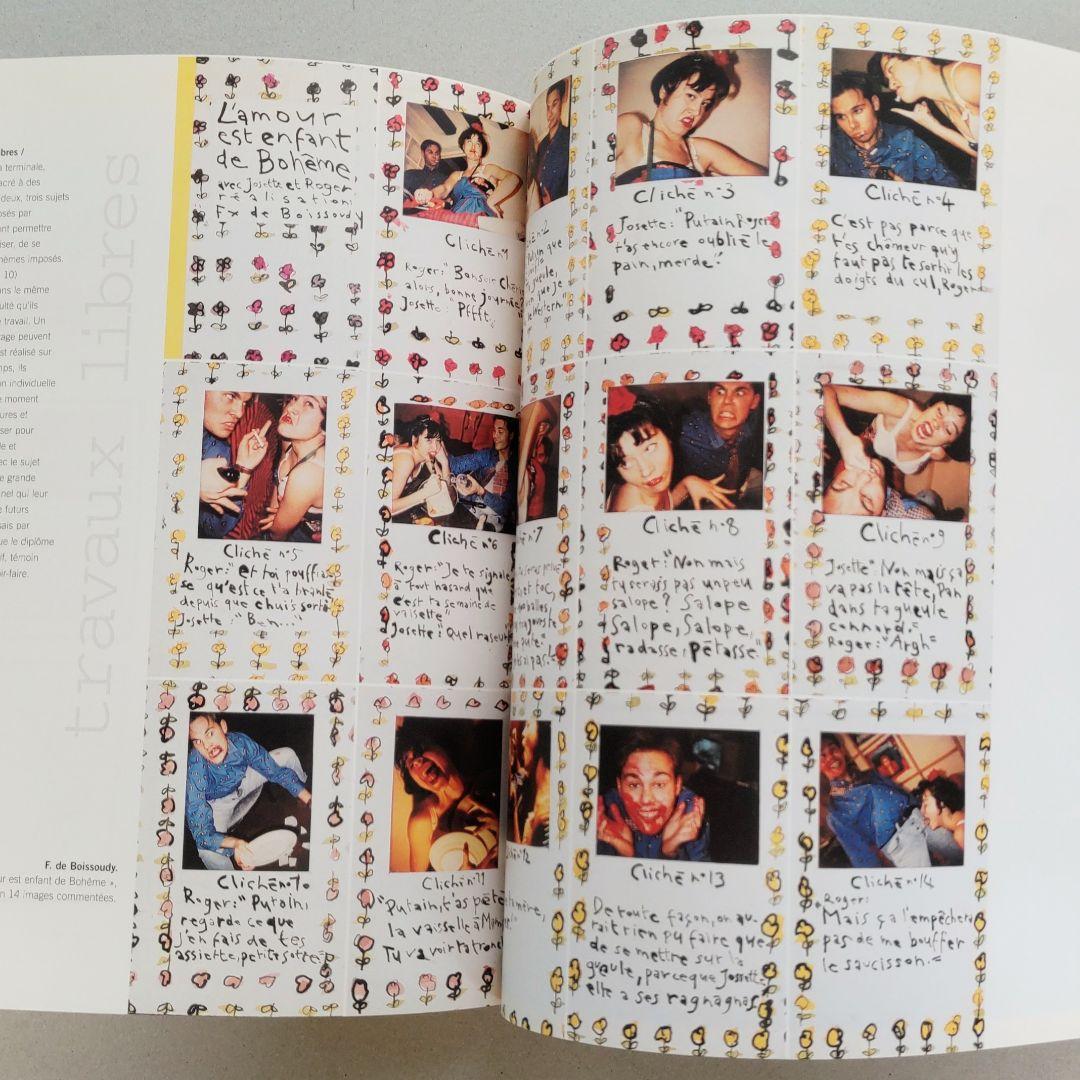 bres /
a terminale,
acré à des
deux, trois sujets
osés par
ont permettre
iser, de se
hèmes imposés.
10)
ans le même
ulté qu'ils
e travail. Un
rage peuvent
st réalisé sur
mps, ils
on individuelle
e moment
ures et
ser pour
le et
ec le sujet
e grande
nel qui leur
e futurs
sais par
que le diplôme
if, témoin
oir-faire.
travaux libres
F. de Boissoudy.
ur est enfant de Bohême »,
n 14 images commentées.
L'amour
est enfant
de Bohême,
avec Josette et Roger
réalisation:
Fx de Boissoudy
Cliché n°1
Roger: "Bonsoir Chérie
alors, bonne journée?
Josette: "Pffft
Cliché n°3
Josette: "Putain Roger
t'as encore oublié le
pain, merde."
Cliché n°4
C'est pas parce que
t'es chômeur qu'y
faut pas te sortir les
doigts du cul, Roger
Cliché n°5
Roger: "et toi pouffias
se qu'est ce t'a branlé
depuis que chui sorti
Josette: "Ben..."
Cliché n°6
Roger: "Je te signale
à tout hasard que
c'est ta semaine de
vaisselle
Josette: "Quel raseur
n°7
Cliché n°8
Roger: "Non mais
tu serais pas un peu
salope? Salope
Salope, Salope,
radasse, pétasse"
Cliché n°9
Josette "Non mais ça
va pas la tête, Pan
dans ta gueule
connard."
Roger: "Argh"
Cliché n°10
Roger: "Putain,
regarde ce que
j'en fais de tes
assiette, petite sotte
Cliché n°11
"Putain, t'as pété
la vaisselle à
Tu va voir ta tronc
n°12
Cliché n°13
De toute façon, on au
rait rien pu faire que
de se mettre sur la
gueule, parce que Josette,
elle a ses ragnagnas
Cliché n°14
Roger:
Mais ça l'empêchera
pas de me bouffer
le saucisson."